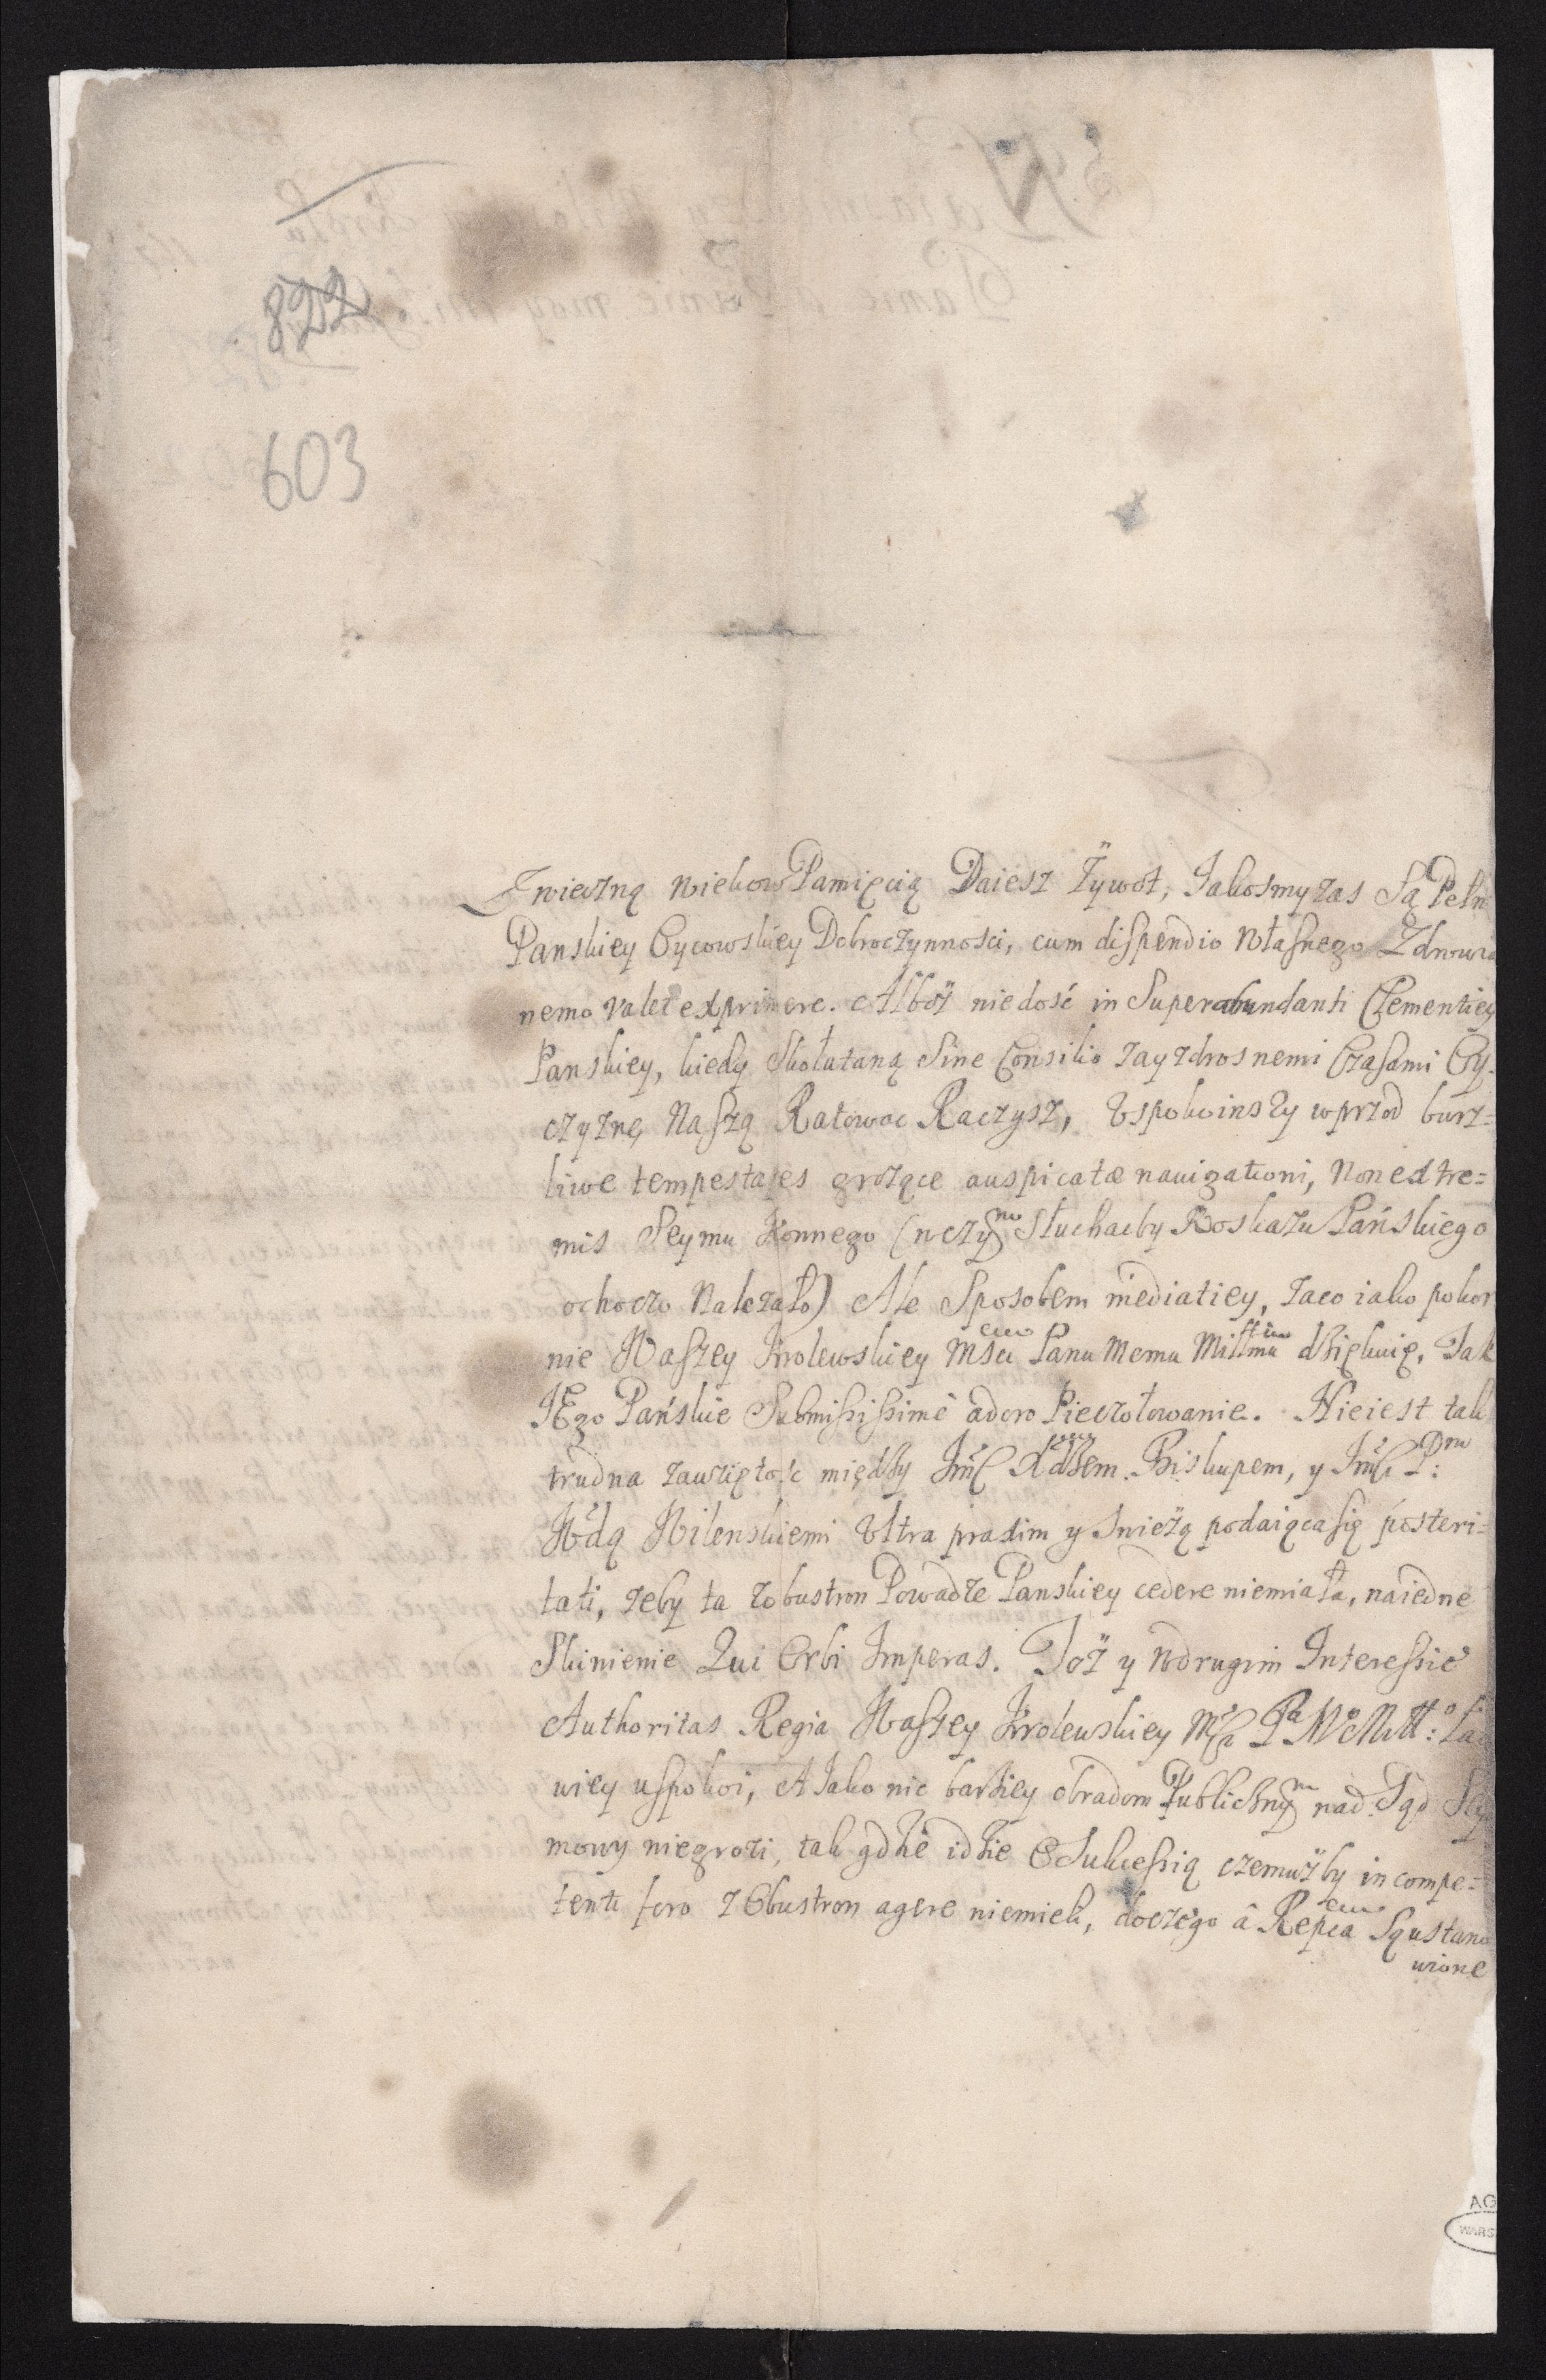 822
603
wieczną wiekow Pamięcią Daiesz Żywot, Jakosmyzas Są Pełn
Panskiey Oycowskiey Dobroczynnosci, cum dispendio własnego Zdrowia
nemo valet exprimere. Alboż niedość in Superabundanti Clementiey
Panskiey, kiedy Skołataną Sine Consilio zayzdrosnemi Czasami Oy-
czyznę Naszą Ratowac Raczysz, Uspokoinszy wprzod burz-
liwe tempestates grożące auspicatæ nauigationi, non extre=
mis Seymu Konnego (wczym Słuchacby Roskazu Pańskiego
ochoczo Należało) Ale Sposobem mediatiey, zaco iako pokor
nie Waszey Krolewskiey Msci Panu Memu Miłłmu dziękuię, Tak
JEgo Pańskie Submississimè adoro Pieczołowanie. Nieiest tak
trudna zawziętość między Jmć Xdzem Biskupem, y Jmć P:
Wdą Wilenskiemi Ultra praxim y Swieżą podaiącasię posteri=
tati, żeby ta zobustron Powadze Panskiey cedere niemiała, naiedne
Skinienie Qui Orbi Imperas. Toż y wdrugim Interessie
Authoritas Regia Waszey Krolewskiey Mści Pa Mo Miłł:
wiey uspokoi, A Jako nic bardziey obradom Publicznym nad Sąd Sey
mowy niegrozi, tak gdzie idzie O Sukcessią czemużby in compe=
tenti foro z Obustron agere niemieli, doczego â Repca Sąustano
wione
AG
WARS